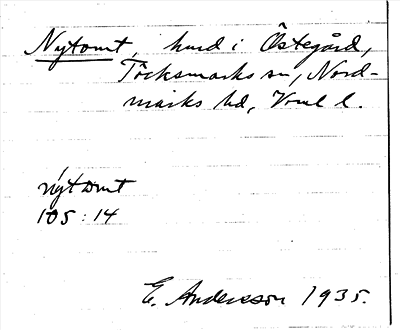 Nytomt, hmd i Östegård,
Töcksmarks sn, Nord-
marks hd, Vrml l.
nytomt
105:14
E. Andersson 1935.